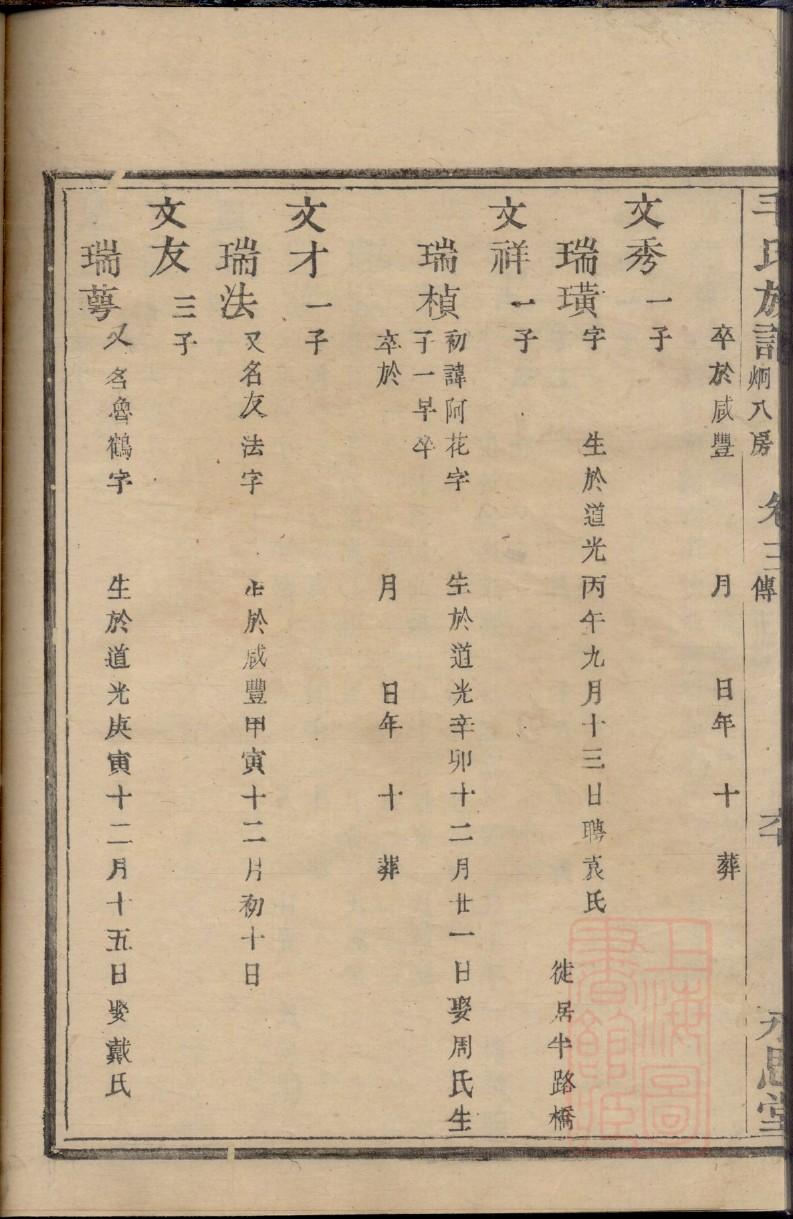 毛氏族譜 炯八房 卷三 傳 六十 永思堂
卒於咸豐 月 日年 十 葬
文秀 一子
瑞璜 字 生於道光丙午九月十三日聘袁氏
徙居牛路橋
文祥 一子
瑞楨 初諱阿花字 生於道光辛卯十二月廿一日娶周氏生
子一早卒
卒於 月 日年 十 葬
文才 一子
瑞法 又名友法字 生於咸豐甲寅十二月初十日
文友 三子
瑞萼 又名魯鶴字 生於道光庚寅十二月十五日娶戴氏
上海圖書館藏